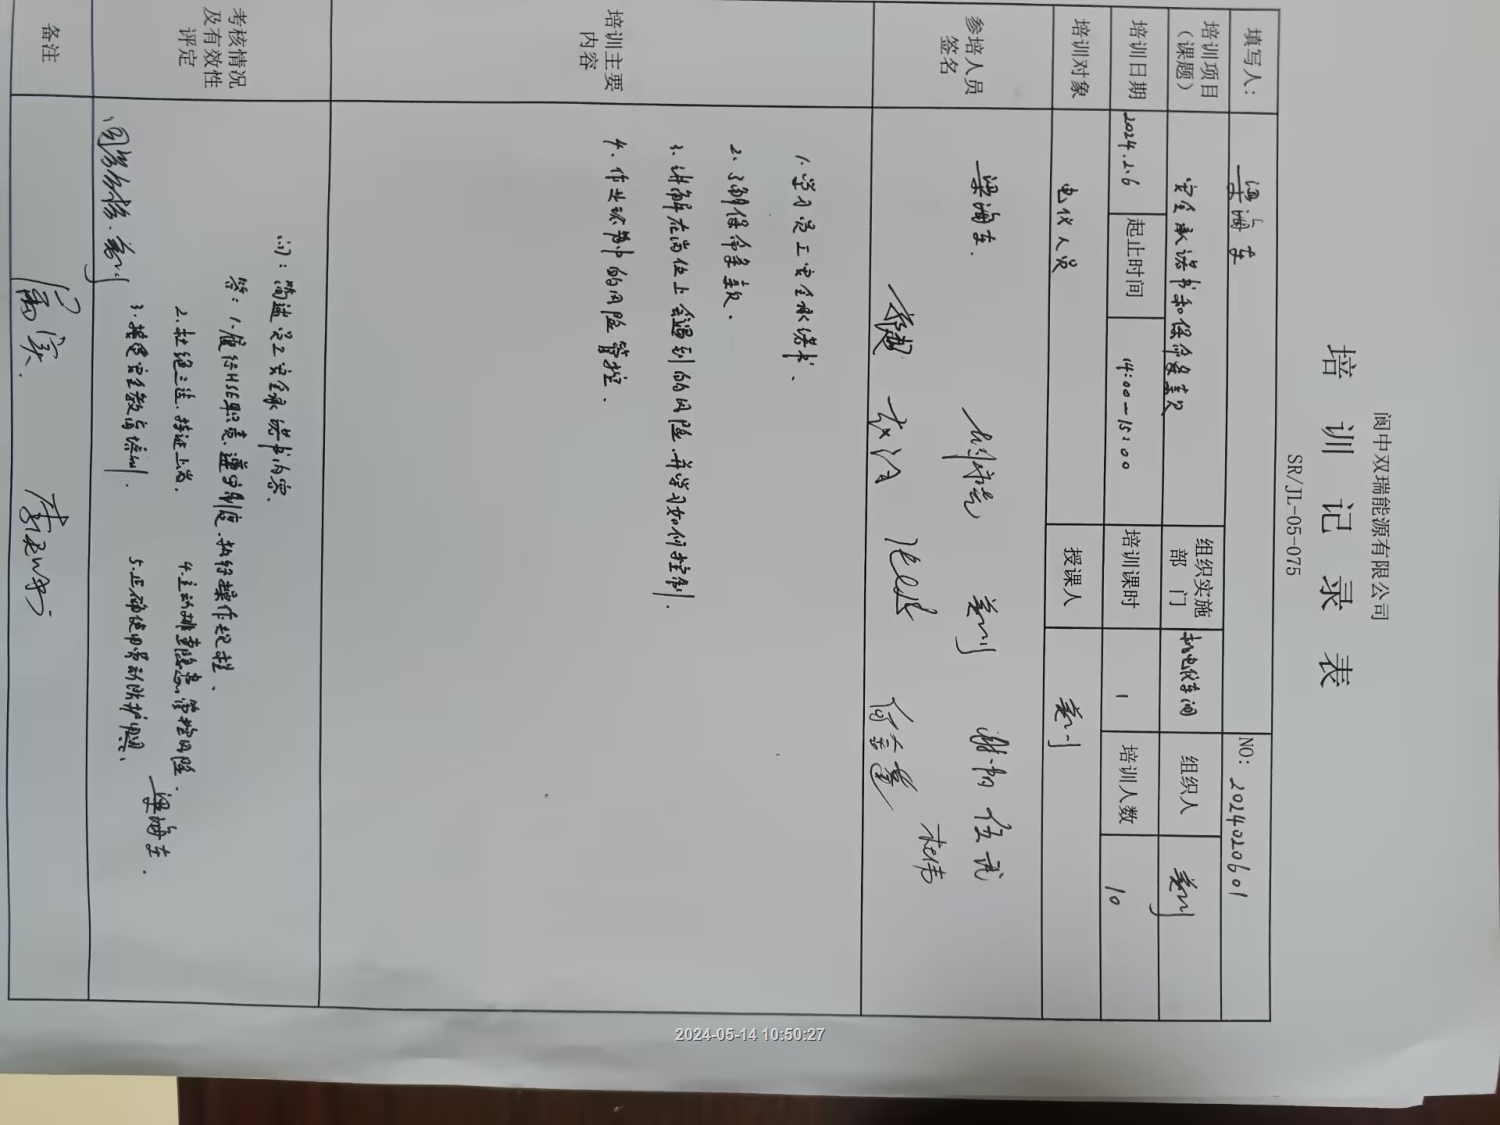 阆中双瑞能源有限公司
培训记录表
SR/JL-05-075
填写人: 梁海东 NO: 2024020601
培训项目（课题） 安全承诺书和保命条款 组织实施部门 机电仪车间 组织人 姜川
培训日期 2024.2.6 起止时间 14:00-15:00 培训课时 1 培训人数 10
培训对象 电仪人员 授课人 姜川
参培人员签名 梁海东. 姜川 谢韬 伍武
杜伟
培训主要内容 1.学习员工安全承诺书、
2.了解保命条款.
3.讲解在岗位上会遇到的风险.并学习如何控制.
4.作业环节中的风险管控.
考核情况及有效性评定 问:简述员工安全承诺书内容.
答:1.履行HSE职责.遵守制度.执行操作规程.
2.杜绝三违.持证上岗. 4.主动排查隐患.管控风险.
3.接受安全教育培训. 5.正确使用劳动防护用品.
梁海东.
姜川
备注
2024-05-14 10:50:27